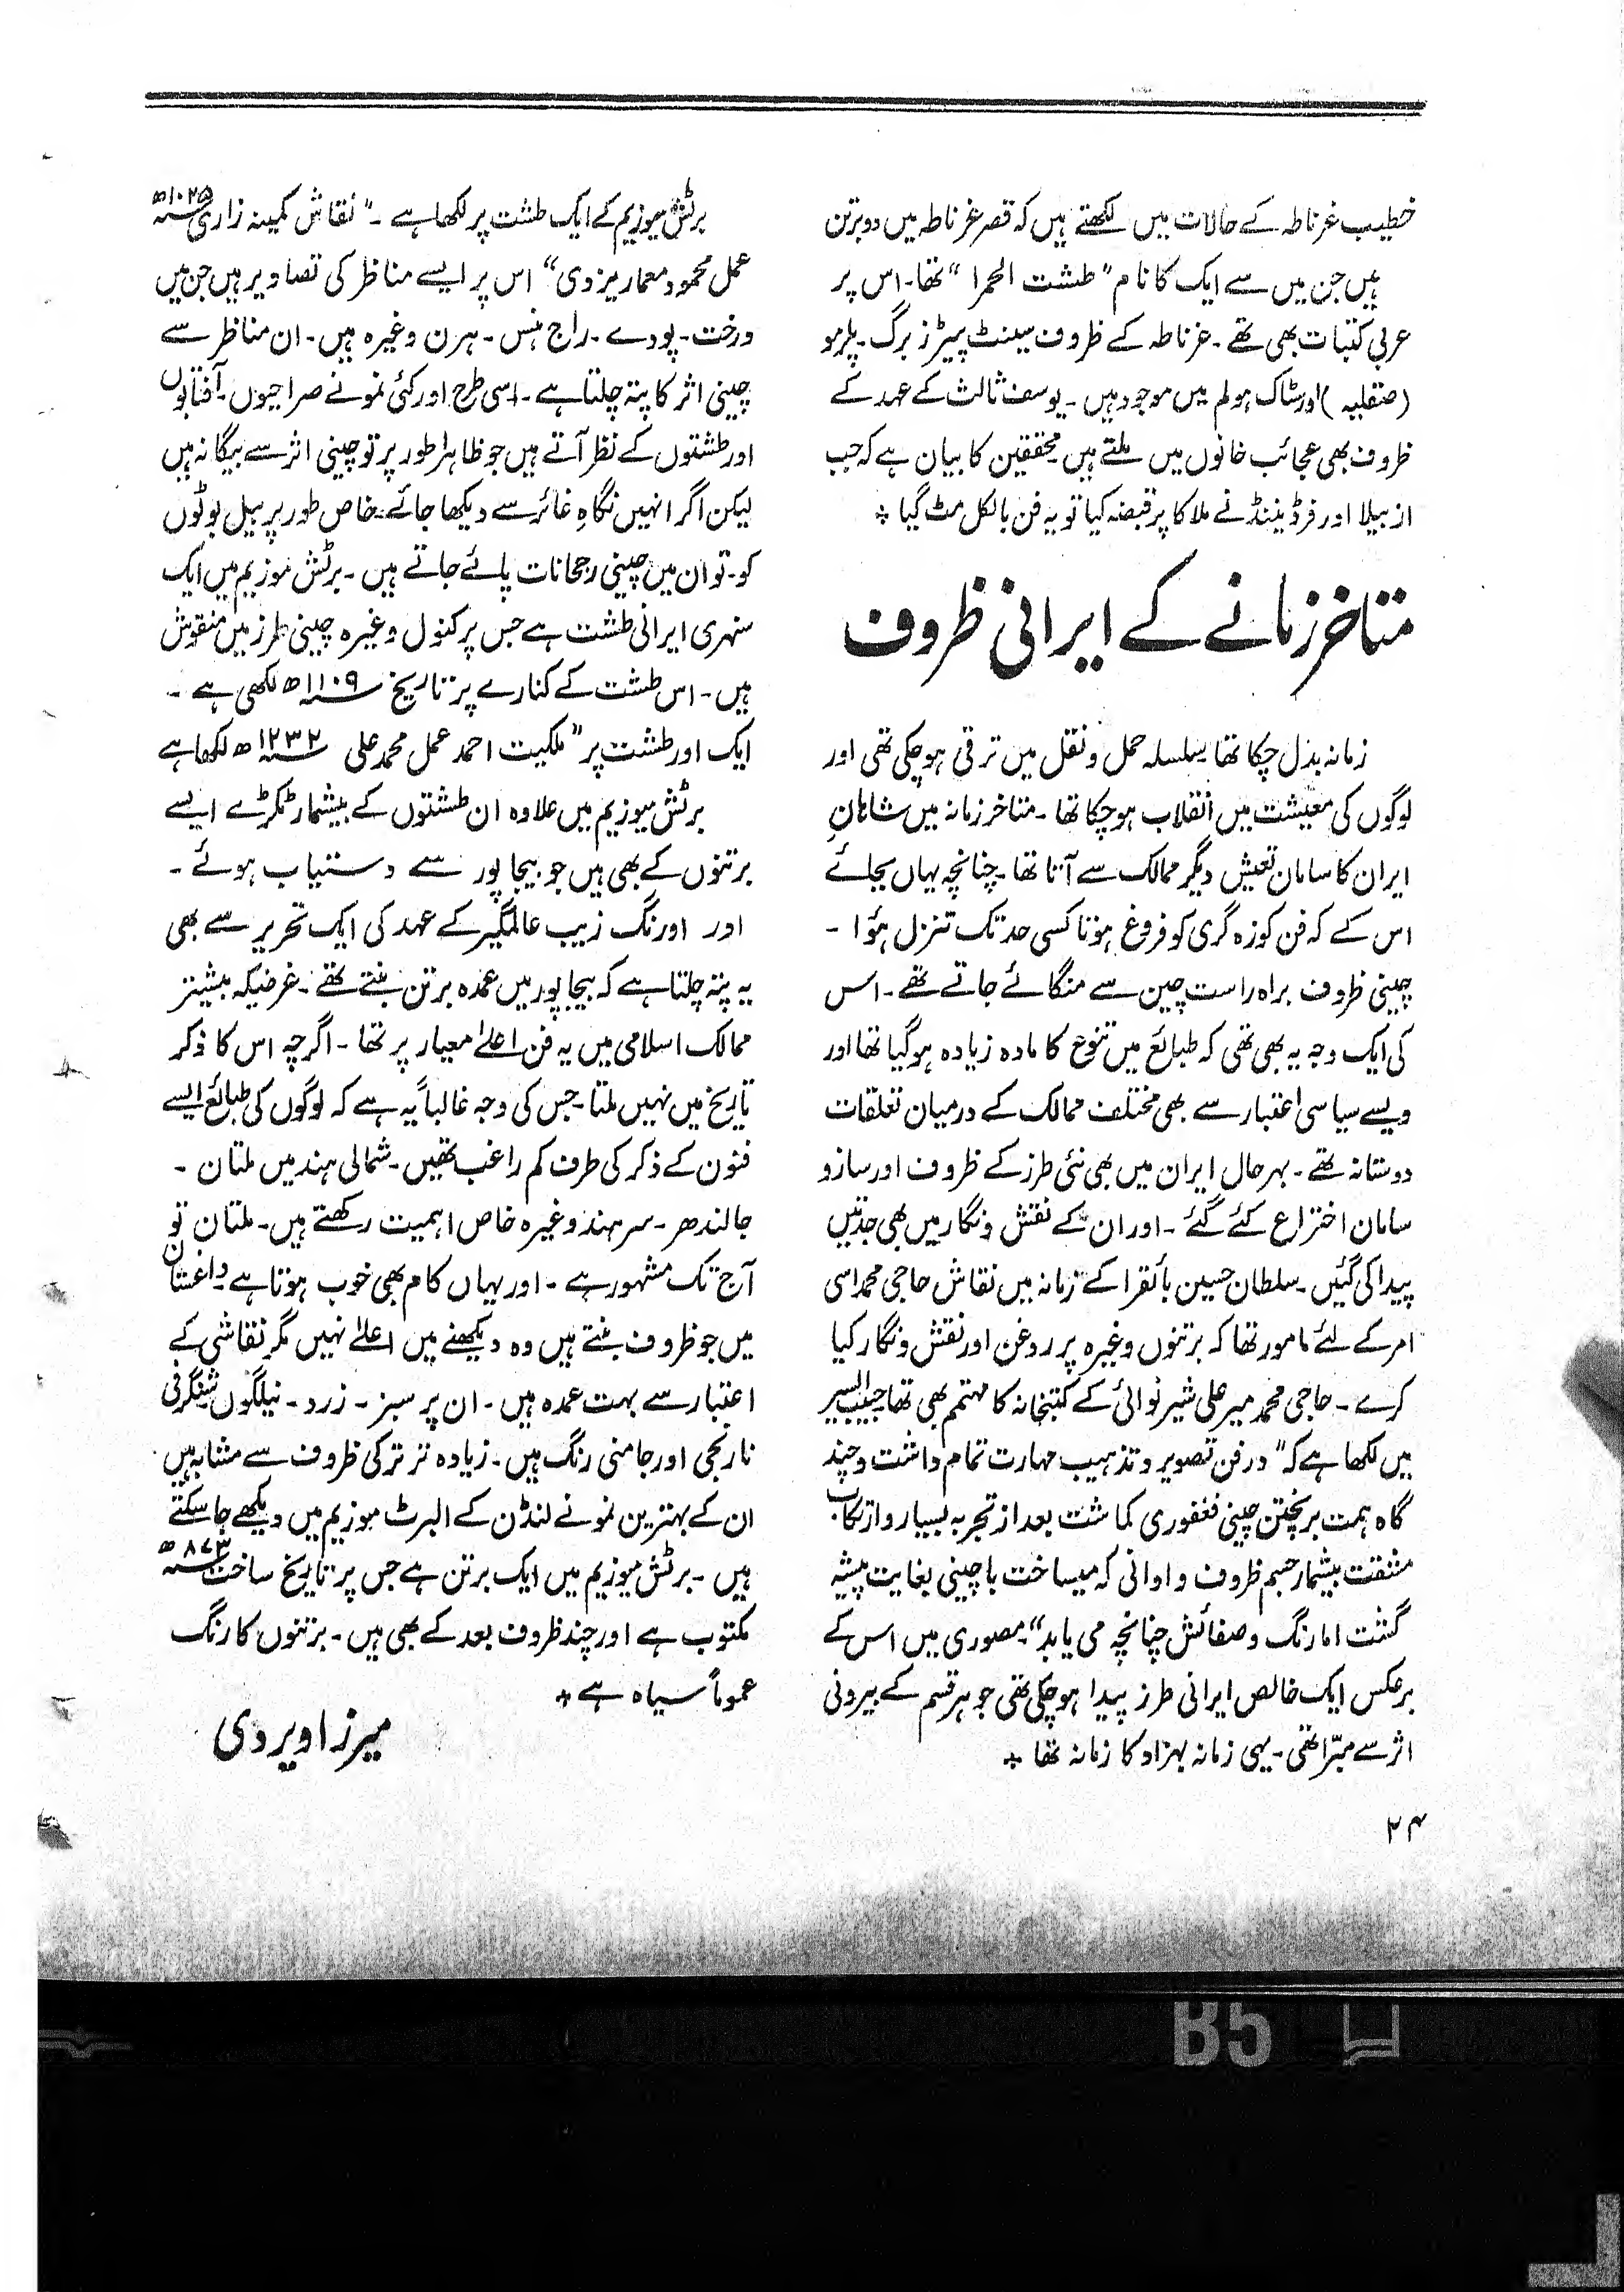 خطیب غرناطہ کے حالات میں لکھتے ہیں کہ قصر غرناطہ میں دو برتن
ہیں جن میں سے ایک کا نام "طشت الحمرا" تھا۔ اس پر
عربی کتبات بھی تھے۔ غرناطہ کے ظروف سینٹ پیٹرز برگ۔ پلرمو
(صقلیہ) اور سٹاک ہولم میں موجود ہیں۔ یوسف ثالث کے عہد کے
ظروف بھی عجائب خانوں میں ملتے ہیں۔ محققین کا بیان ہے کہ جب
ازبیلا اور فرڈیننڈ نے ملاکا پر قبضہ کیا تو یہ فن بالکل مٹ گیا ٭
متاخر زمانے کے ایرانی ظروف
زمانہ بدل چکا تھا۔ سلسلہ حمل و نقل میں ترقی ہو چکی تھی اور
لوگوں کی معیشت میں انقلاب ہو چکا تھا۔ متاخر زمانہ میں شاہانِ
ایران کا سامان تعیش دیگر ممالک سے آتا تھا۔ چنانچہ یہاں بجائے
اس کے کہ فن کوزہ گری کو فروغ ہوتا کسی حد تک تنزل ہؤا۔
چینی ظروف براہ راست چین سے منگائے جاتے تھے۔ اس
کی ایک وجہ یہ بھی تھی کہ طبائع میں تنوع کا مادہ زیادہ ہو گیا تھا اور
ویسے سیاسی اعتبار سے بھی مختلف ممالک کے درمیان تعلقات
دوستانہ تھے۔ بہر حال ایران میں بھی نئی طرز کے ظروف اور سازو
سامان اختراع کئے گئے۔ اور ان کے نقش و نگار میں بھی جدتیں
پیدا کی گئیں۔ سلطان حسین بائقرا کے زمانہ میں نقاش حاجی محمد اسی
امر کے لئے مامور تھا کہ برتنوں وغیرہ پر روغن اور نقش و نگار کیا
کرے۔ حاجی محمد میر علی شیر نوائی کے کتبخانہ کا مہتمم بھی تھا۔ حبیب السیر
میں لکھا ہے کہ "در فن تصویر و تذہیب مہارت تمام داشت و چند
گاہ ہمت بر پختن چینی فغفوری گماشت بعد از تجربہ بسیار و ارتکاب
مشقت بیشمار جسم ظروف و اوانی کہ میساخت با چینی بغایت پیشہ
گشت اما رنگ و صفائش چنانچہ می یابد"۔ مصوری میں اس کے
برعکس ایک خالص ایرانی طرز پیدا ہو چکی تھی جو ہر قسم کے بیرونی
اثر سے مبّرا تھی۔ یہی زمانہ بہزاد کا زمانہ تھا ٭
۲۴
برٹش میوزیم کے ایک طشت پر لکھا ہے۔ "نقاش کمینہ زاری ۱۰۲۵ھ
عمل محمود معمار یزدی" اس پر ایسے مناظر کی تصاویر ہیں جن میں
درخت۔ پودے۔ راج ہنس۔ ہرن وغیرہ ہیں۔ ان مناظر سے
چینی اثر کا پتہ چلتا ہے۔ اسی طرح اور کئی نمونے صراحیوں۔ آفتابوں
اور طشتوں کے نظر آتے ہیں جو ظاہرا طور پر تو چینی اثر سے بیگانہ ہیں
لیکن اگر انہیں نگاہِ غائر سے دیکھا جائے۔ خاص طور پر بیل بوٹوں
کو۔ تو ان میں چینی رجحانات پائے جاتے ہیں۔ برٹش موزیم میں ایک
سنہری ایرانی طشت ہے جس پر کنول وغیرہ چینی طرز میں منقوش
ہیں۔ اس طشت کے کنارے پر تاریخ ۱۱۰۹ھ لکھی ہے۔
ایک اور طشت پر "ملکیت احمد عمل محمد علی ۱۲۳۲ھ لکھا ہے
برٹش میوزیم میں علاوہ ان طشتوں کے بیشمار ٹکڑے ایسے
برتنوں کے بھی ہیں جو بیجاپور سے دستیاب ہوئے۔
اور اورنگ زیب عالمگیر کے عہد کی ایک تحریر سے بھی
یہ پتہ چلتا ہے کہ بیجاپور میں عمدہ برتن بنتے تھے۔ غرضیکہ بیشتر
ممالک اسلامی میں یہ فن اعلےٰ معیار پر تھا۔ اگرچہ اس کا ذکر
تاریخ میں نہیں ملتا۔ جس کی وجہ غالباً یہ ہے کہ لوگوں کی طبائع ایسے
فنون کے ذکر کی طرف کم راغب تھیں۔ شمالی ہند میں ملتان۔
جالندھر۔ سرہند وغیرہ خاص اہمیت رکھتے ہیں۔ ملتان تو
آج تک مشہور ہے۔ اور یہاں کام بھی خوب ہوتا ہے۔ داغستان
میں جو ظروف بنتے ہیں وہ دیکھنے میں اعلےٰ نہیں مگر نقاشی کے
اعتبار سے بہت عمدہ ہیں۔ ان پر سبز۔ زرد۔ نیلگوں شنگرفی
نارنجی اور جامنی رنگ ہیں۔ زیادہ تر ترکی ظروف سے مشابہ ہیں
ان کے بہترین نمونے لنڈن کے البرٹ میوزیم میں دیکھے جا سکتے
ہیں۔ برٹش میوزیم میں ایک برتن ہے جس پر تاریخ ساخت ۸۷۳ھ
مکتوب ہے اور چند ظروف بعد کے بھی ہیں۔ برتنوں کا رنگ
عموماً سیاہ ہے ٭
میرزا ویردی
B5